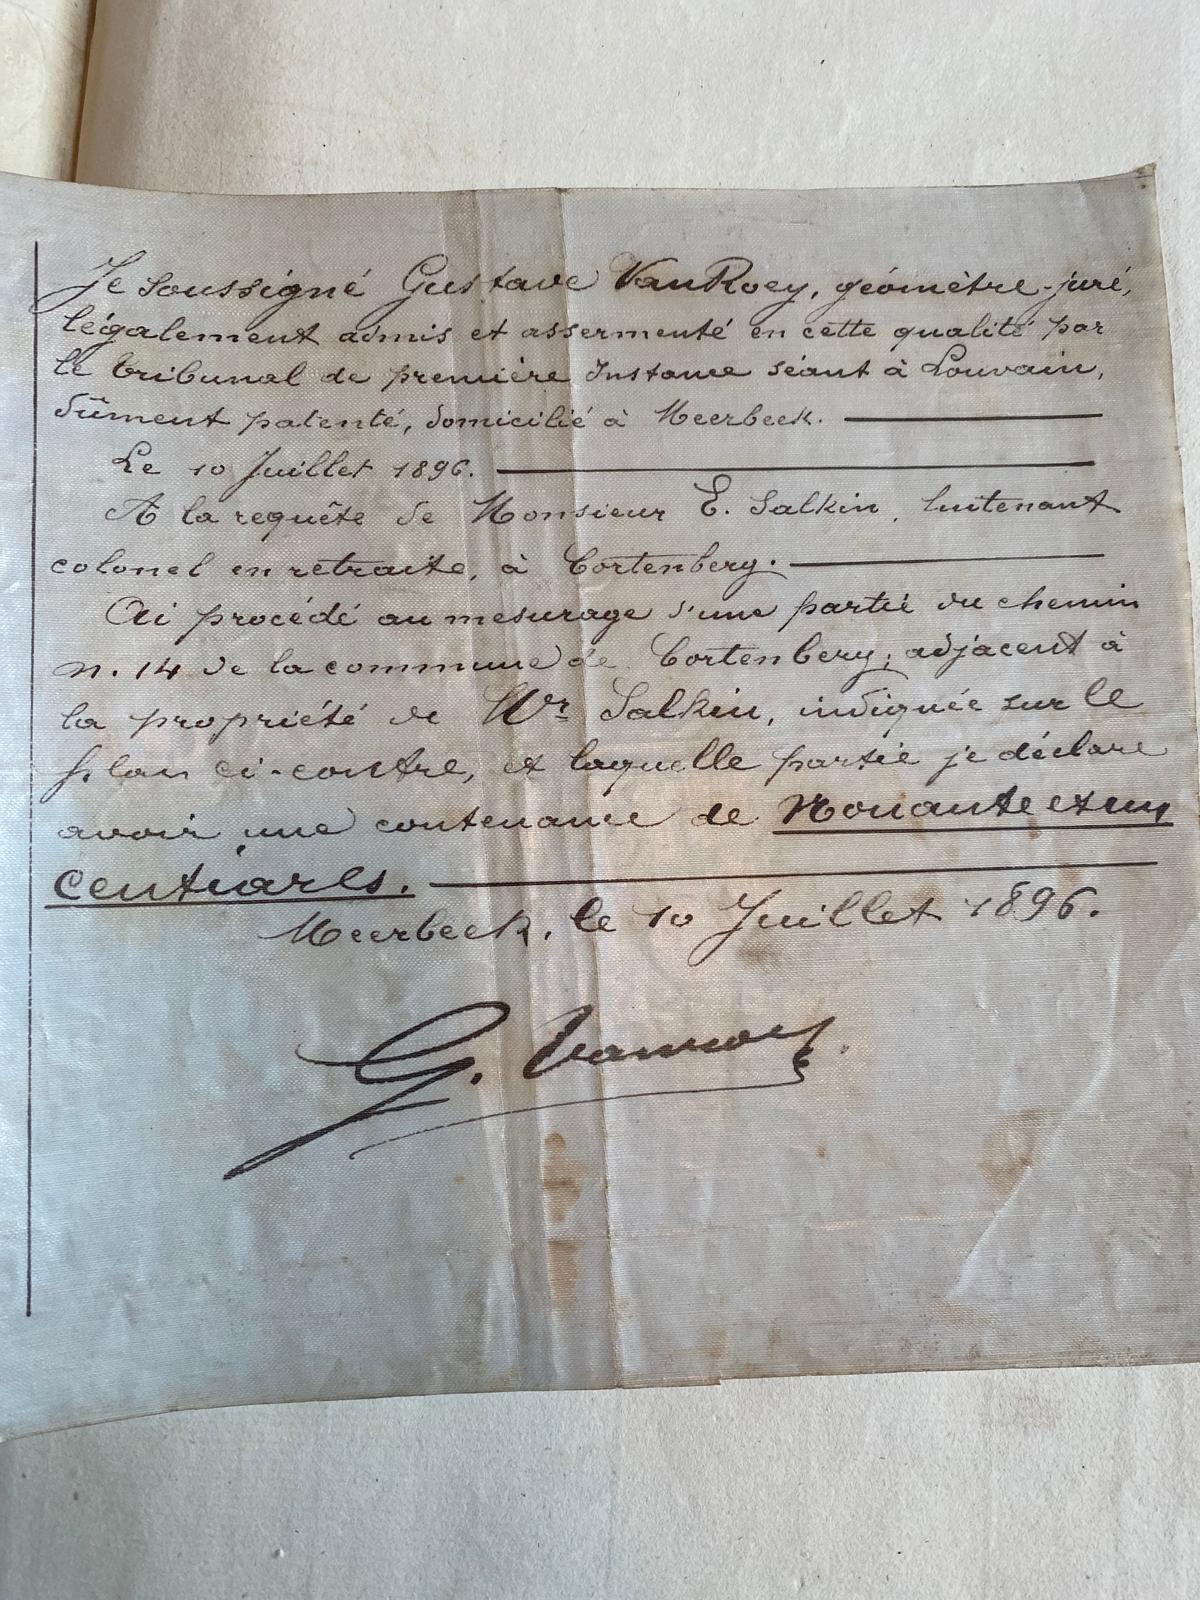 Je soussigné Gustave VanRoey, géomètre-juré,
légalement admis et assermenté en cette qualité par
le tribunal de première Instance séant à Louvain,
dûment patenté, domicilié à Meerbeek.
Le 10 Juillet 1896.
A la requête de Monsieur E. Salkin, luitenant
colonel en retraite, à Cortenberg.
Ai procédé au mesurage d'une partie du chemin
n. 14 de la commune de Cortenberg, adjacent à
la propriété de Mr Salkin, indiquée sur le
plan ci-contre, et laquelle partie je déclare
avoir une contenance de Nonante et un
centiares.
Meerbeek, le 10 Juillet 1896.
G. Vanroey